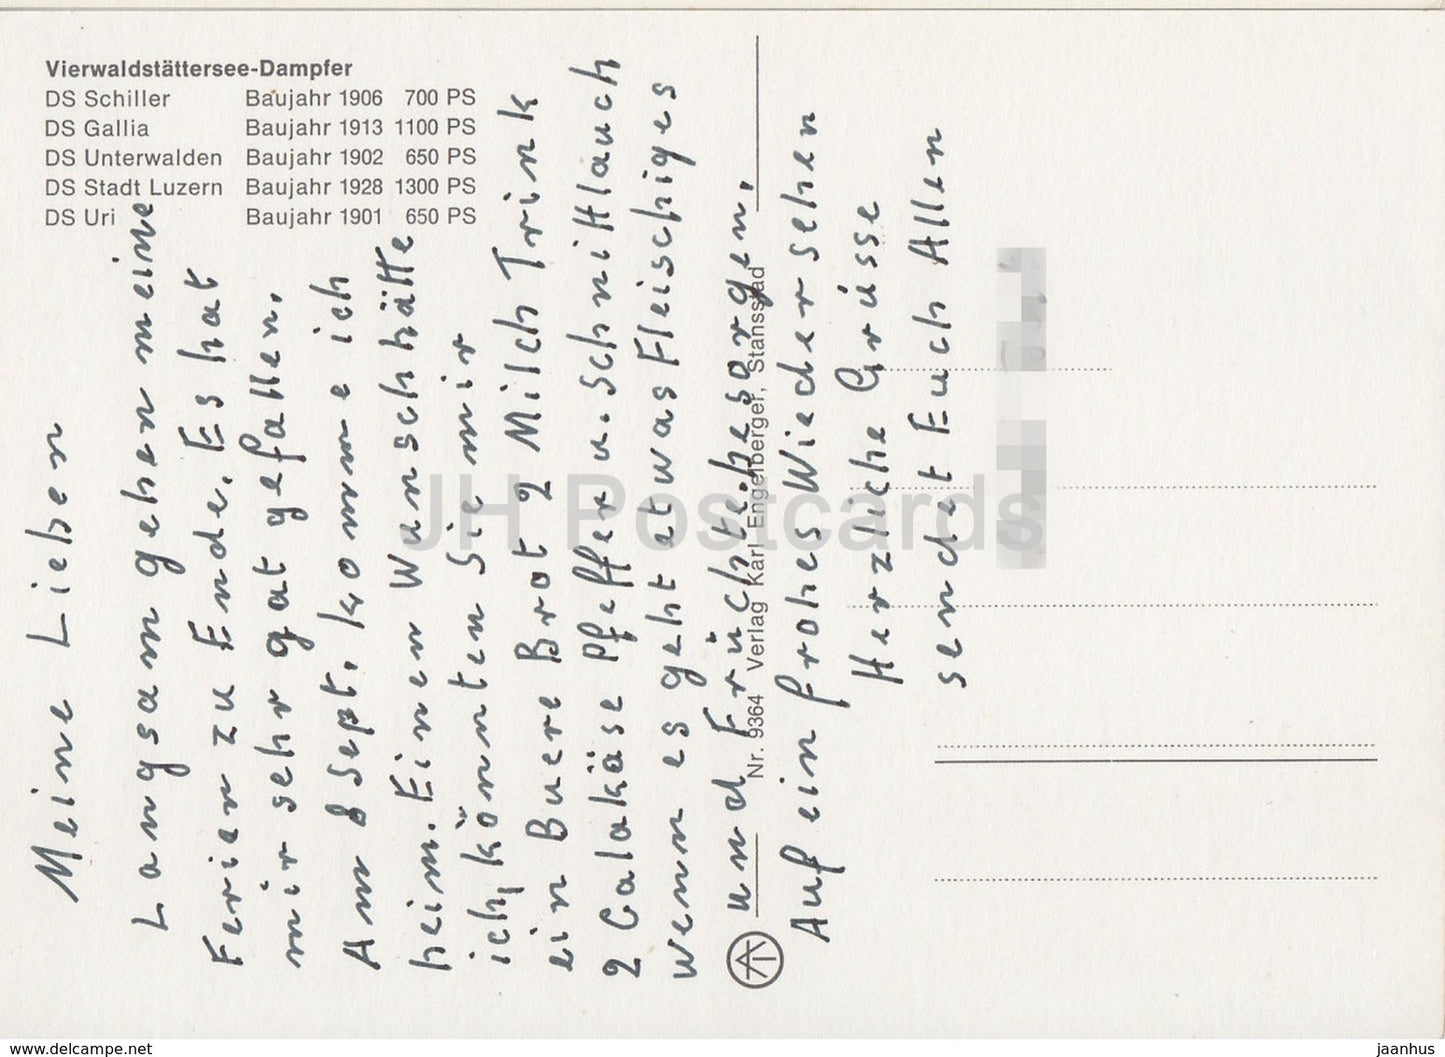 Vierwaldstättersee-Dampfer
DS Schiller Baujahr 1906 700 PS
DS Gallia Baujahr 1913 1100 PS
DS Unterwalden Baujahr 1902 650 PS
DS Stadt Luzern Baujahr 1928 1300 PS
DS Uri Baujahr 1901 650 PS
Meine Lieben
Langsam gehen meine
Ferien zu Ende. Es hat
mir sehr gat gefallen.
Am 8 Sept. komme ich
heim. Einen Wunsch hätte
ich, könnten Sie mir
ein Buere Brot 2 Milch Trink
2 Galakäse Pfeffer u. Schnittlauch
wenn es geht etwas Fleischiges
und Früchte besorgen.
Auf ein frohes Wiedersehen
Herzliche Grüsse
sendet Euch Allen
Nr. 9364 Verlag Karl Engelberger, Stansstad
JH Postcards
www.delcampe.net
jaanhus